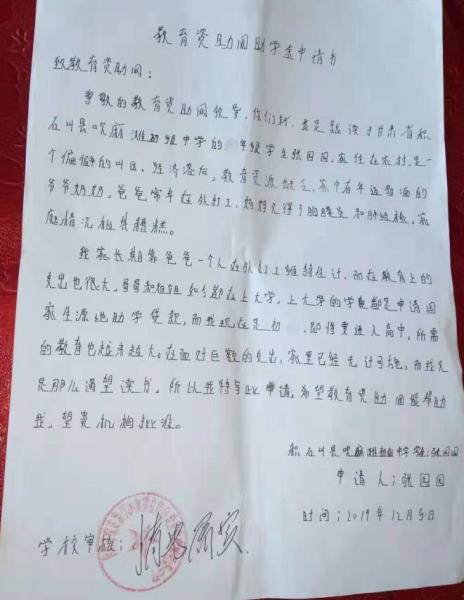 教育资助网助学金申请书
致教育资助网：
尊敬的教育资助网领导，你们好，我是就读于甘肃省积
石山县吹麻滩初级中学的 年级学生张园园，家住在农村，是一
个偏僻的山区，经济落后，教育资源缺乏，家中有年迈多病的
爷爷奶奶，爸爸常年在外打工，妈妈又得了胸膜炎和肺结核，家
庭情况极其糟糕。
我家长期靠爸爸一个人在外打工维持生计，而在教育上的
支出也很大，哥哥和姐姐如今都在上大学，上大学的学费都是申请国
家生源地助学贷款，而我现在是初 ，即将要进入高中，所需
的教育也越来越大。在面对巨额的支出，家里已经无计可施，而我又
是那么渴望读书，所以我特写此申请，希望教育资助网能帮助
我，望贵机构批准。
积石山县吹麻滩初级中学 学生：张园园
申请人：张园园
时间：2019年12月5日
学校审核：情况属实